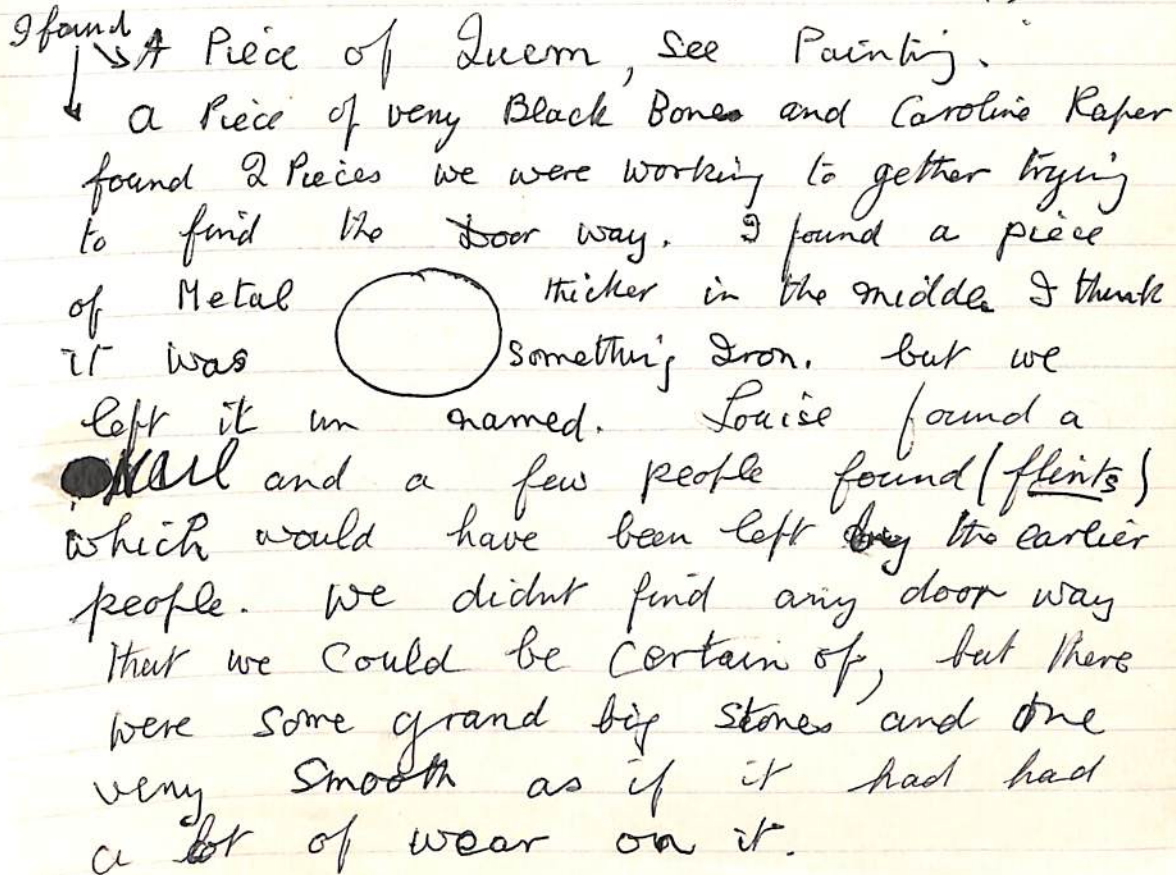 I found
A Piece of Quern, see Painting.
a Piece of very Black Bones and Caroline Raper
found 2 Pieces we were working to gether trying
to find the Door way. I found a piece
of Metal thicker in the middle I think
it was something Iron. but we
left it un named. Louise found a
Nail and a few people found (flints)
which would have been left by the earlier
people. We didnt find any door way
that we could be certain of, but there
were some grand big stones and one
very smooth as if it had had
a lot of wear on it.